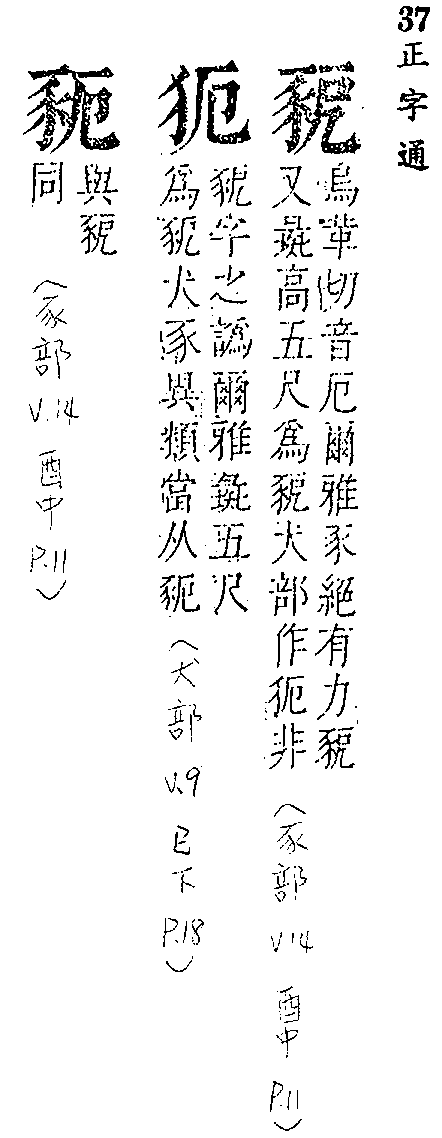 37 正字通
烏革切音厄爾雅豕絕有力
又彘高五尺爲犬部作非
(豕部 V.14 酉中 P.11)
豟字之譌爾雅彘五尺
爲豟犬豕異類當从豟
(犬部 V.9 巳下 P.18)
豟
與
同
(豕部 V.14 酉中 P.11)